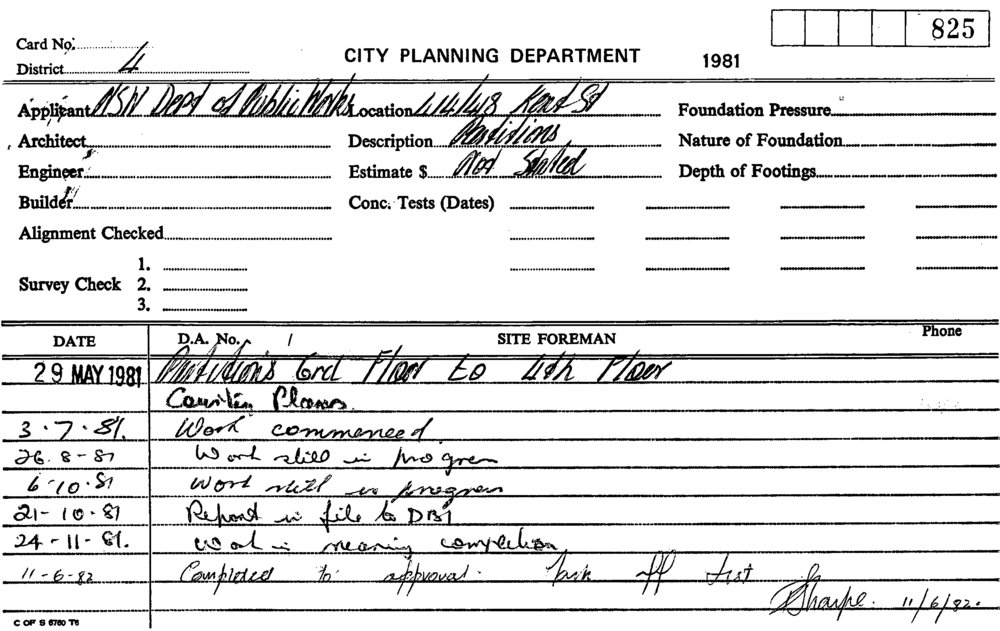 825
Card No.
CITY PLANNING DEPARTMENT 1981
District 4
Applicant NSW Dept of Public Works Location 414/418 Kent St Foundation Pressure
Architect Description Partitions Nature of Foundation
Engineer Estimate $ Not Stated Depth of Footings
Builder Conc. Tests (Dates)
Alignment Checked
1.
Survey Check 2.
3.
DATE D.A. No. SITE FOREMAN Phone
29 MAY 1981 Partition's Grd Floor to 4th Floor
Plans
3.7.81. Work commenced
26.8-81 Work still in progress
6-10.81 Work still in progress
21-10.81 Report in file to DBI
24-11-81. Work is nearing completion
11-6-82 Completed to approval. off list
Sharpe. 11/6/82.
C OF S 6780 T6